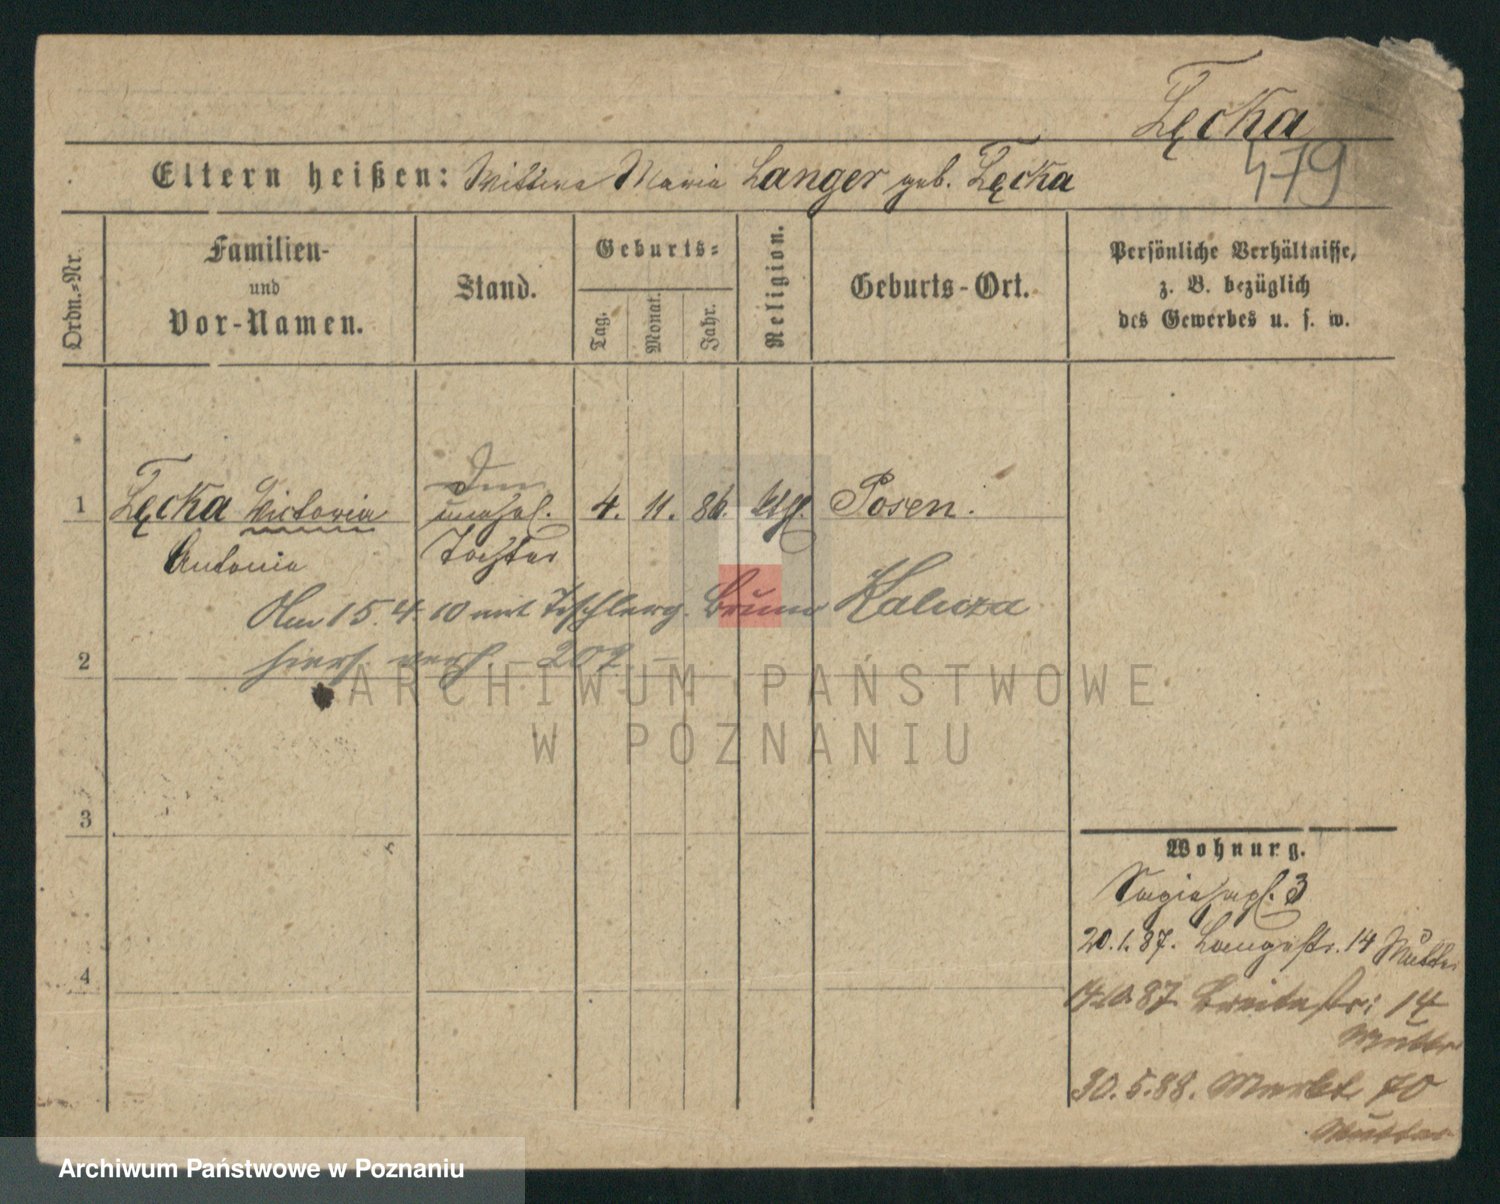 Łęcka
479
Eltern heißen: Wittwe Maria Langer geb. Łęcka
Ordn.-Nr.
Familien-
und
Vor-Namen.
Stand.
Geburts-
Tag.
Monat.
Jahr.
Religion.
Geburts-Ort.
Persönliche Verhältnisse,
z. B. bezüglich
des Gewerbes u. s. w.
1 Łęcka Victoria unehel. 4. 11. 86. Posen.
Antonia Tochter
Am 15.4.10 mit Tischlerg. Bruno Kaluza
2 hiers. verh. - 209 -
3
4
Wohnung.
Sapiehapl. 3
20.1.87. Langestr. 14 Mutter
87 Breitestr: 14
Mutter
30.5.88. Markt 70
Mutter
ARCHIWUM PAŃSTWOWE
W POZNANIU
Archiwum Państwowe w Poznaniu